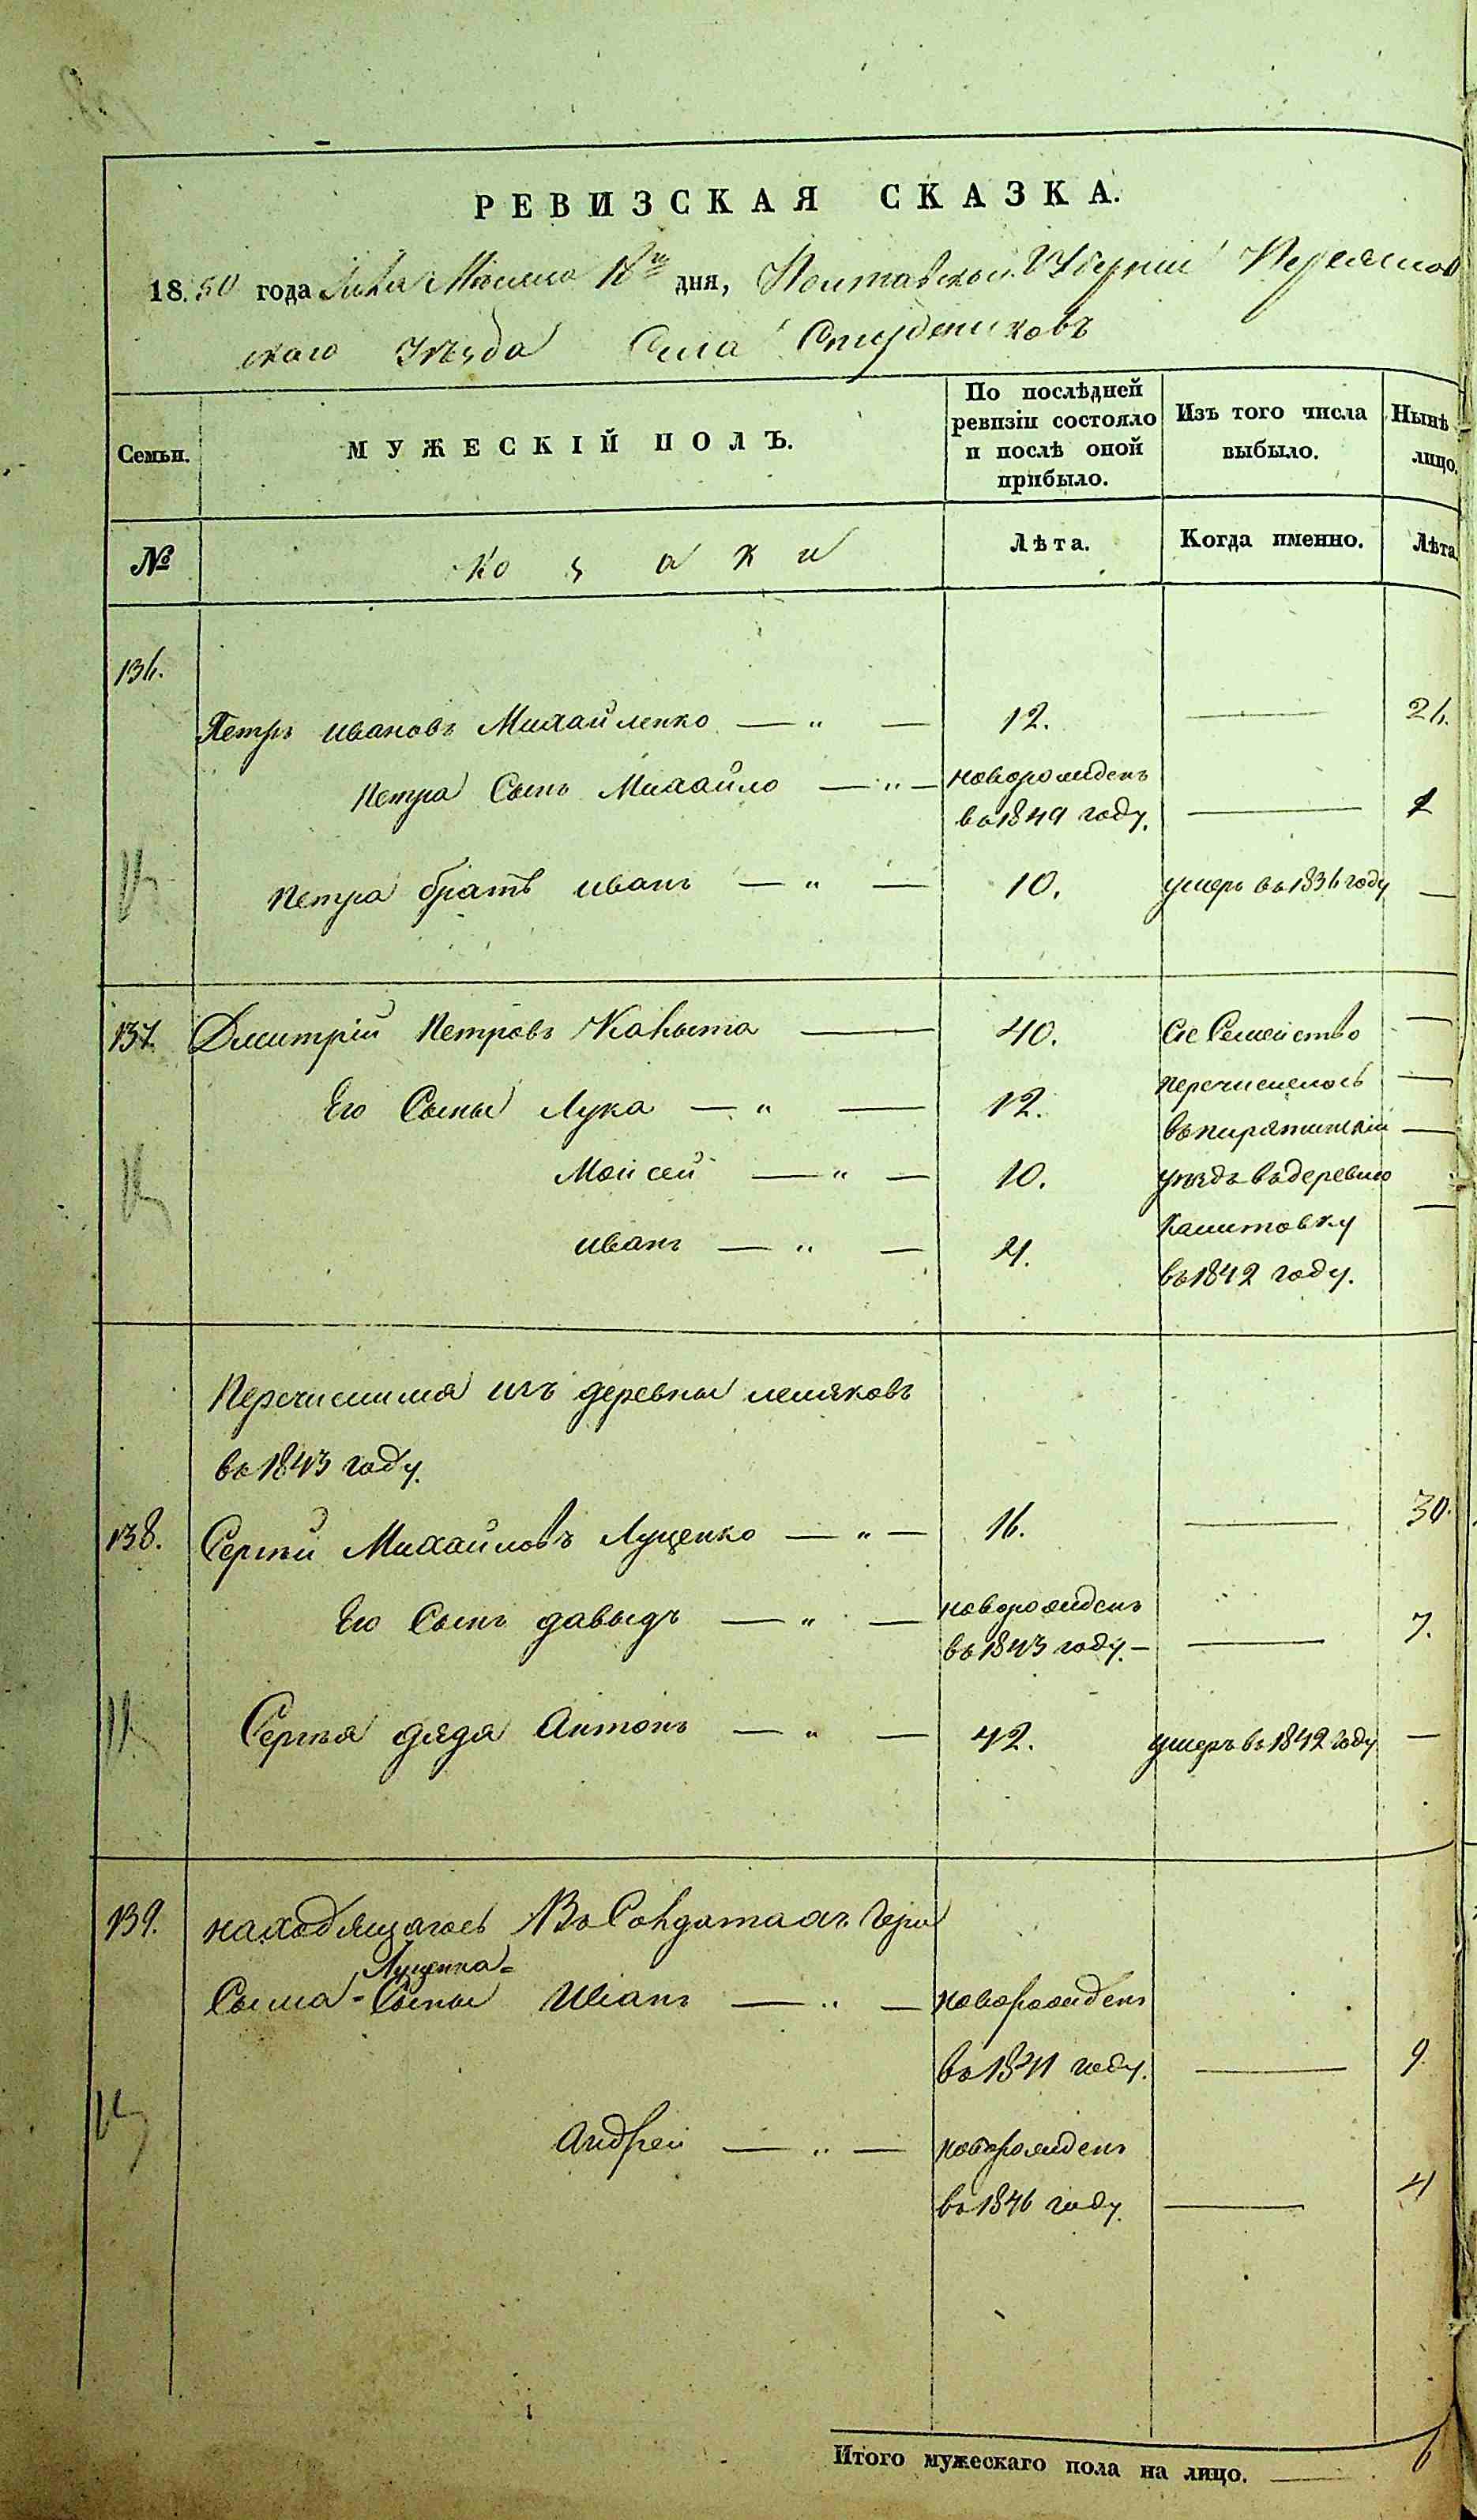 РЕВИЗСКАЯ СКАЗКА.
1850 года Мѣсяца 18го дня, Полтавской Губерніи Переяслов
скаго Уѣзда Села Студениковъ
Семьи. МУЖЕСКІЙ ПОЛЪ. По послѣдней ревизіи состояло и послѣ оной прибыло. Изъ того числа выбыло. Нынѣ лицо.
№ Козаки Лѣта. Когда именно. Лѣта
136.
Петръ Ивановъ Михайленко — „ — 12. — 26.
Петра Сынъ Михайло — „ — новорожденъ
въ 1849 году. — 1
Петра братъ Иванъ — „ — 10. умеръ въ 1836 году —
137. Дмитрій Петровъ — 40. Сіе Семейство —
Его Сыны Лука — „ — 12. перечислелось —
въ пирятинскій —
Моисей — „ — 10. уѣздъ въ деревню
Иванъ — „ — 4. —
въ 1842 году.
Перечислился изъ деревны лемяковъ
въ 1843 году.
138. Сергѣй Михайловъ Луценко — „ — 16. — 30.
Его Сынъ давыдъ — „ — новорожденъ
въ 1843 году. — — 7.
Сергѣя дядя Антонъ — „ — 42. умеръ въ 1842 году —
139. находящагось Въ Солдатахъ
Луценка
Сыны Иванъ — „ — новорожденъ
въ 1841 году. — 9.
Андрей — „ — новорожденъ
въ 1846 году. — 4
Итого мужескаго пола на лицо. — 6